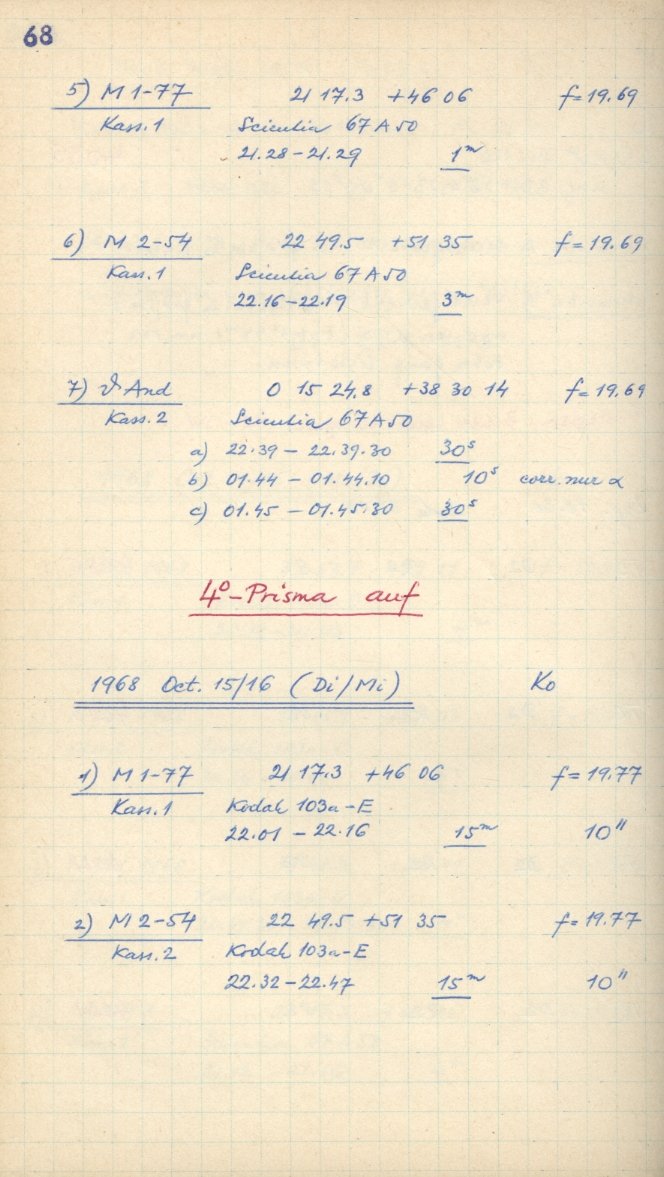 68
5) M 1-77 21 17.3 +46 06 f=19.69
Kass.1 Scientia 67 A 50
21.28-21.29 1ᵐ
6) M 2-54 22 49.5 +51 35 f=19.69
Kass.1 Scientia 67 A 50
22.16-22.19 3ᵐ
7) ϑ And 0 15 24.8 +38 30 14 f=19.69
Kass.2 Scientia 67 A 50
a) 22.39 - 22.39.30 30ˢ
b) 01.44 - 01.44.10 10ˢ corr. nur α
c) 01.45 - 01.45.30 30ˢ
4°-Prisma auf
1968 Oct. 15/16 (Di/Mi) Ko
1) M 1-77 21 17.3 +46 06 f=19.77
Kass.1 Kodak 103a-E
22.01 - 22.16 15ᵐ 10"
2) M 2-54 22 49.5 +51 35 f=19.77
Kass.2 Kodak 103a-E
22.32-22.47 15ᵐ 10"